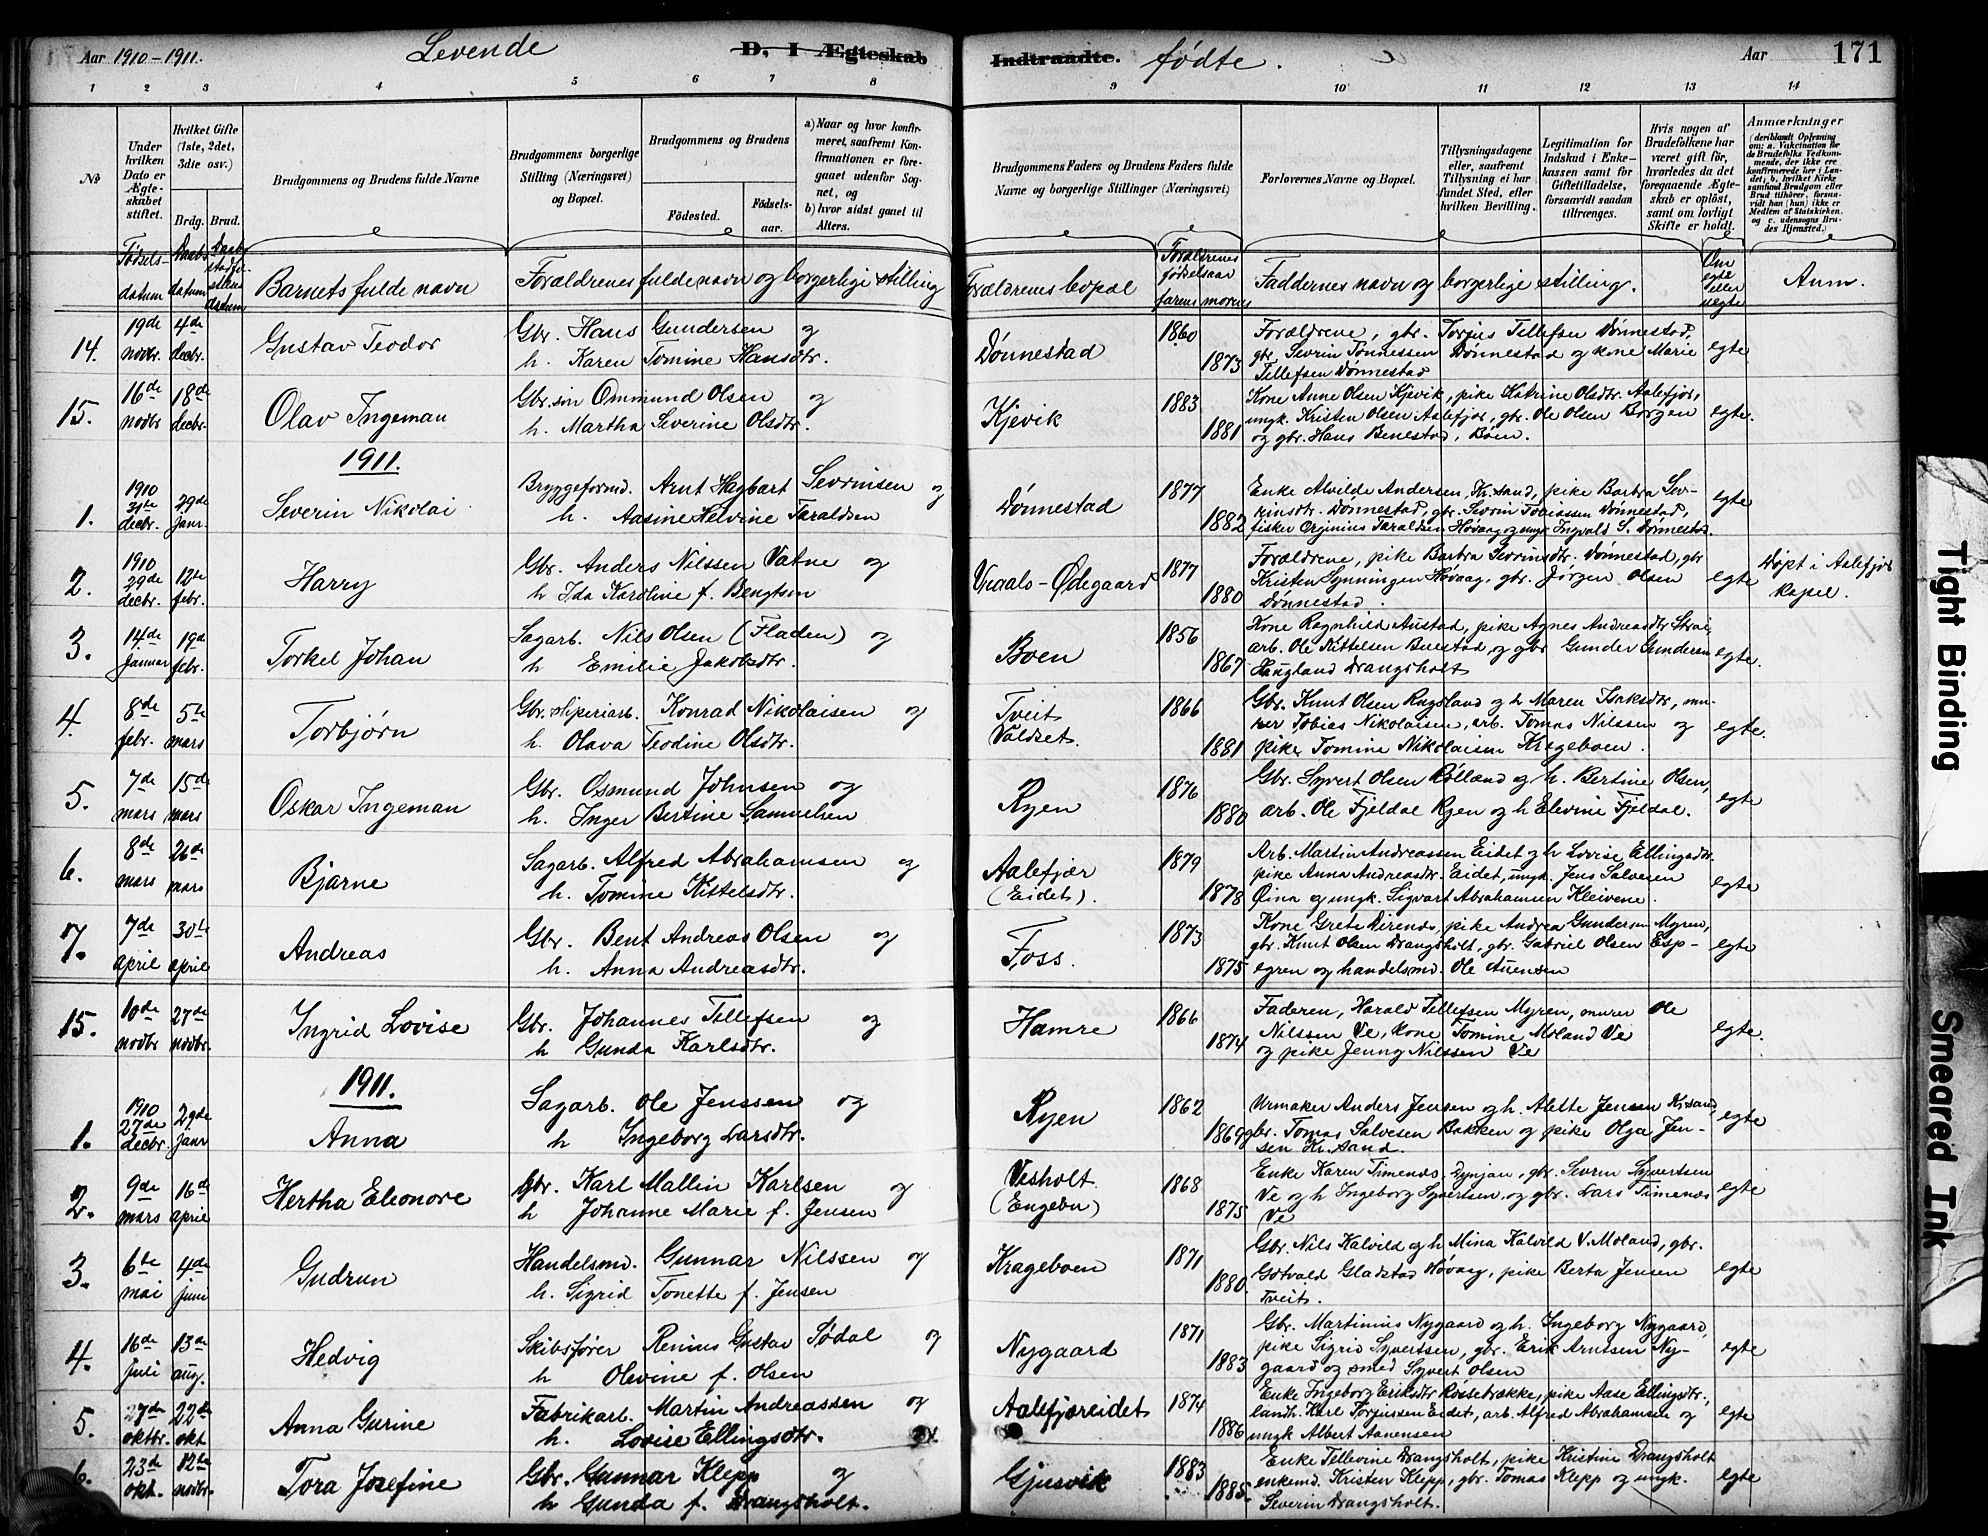 Aar 1910-1911.
Levende
D, I Ægteskab
Indtraadte.
fødte.
Aar
171
1 2 3 4 5 6 7 8 9 10 11 12 13 14
№
Under hvilken Dato er Ægteskabet stiftet.
Hvilket Gifte (1ste, 2det, 3dte osv.)
Brdg. Brud.
Brudgommens og Brudens fulde Navne
Brudgommens borgerlige Stilling (Næringsvei) og Bopæl.
Brudgommens og Brudens
Fødested.
Fødselsaar.
a) Naar og hvor konfirmeret, saafremt Konfirmationen er foregaaet udenfor Sognet, og
b) hvor sidst gaaet til Alters.
Brudgommens Faders og Brudens Faders fulde Navne og borgerlige Stillinger (Næringsvei)
Forlovernes Navne og Bopæl.
Tillysningsdagene eller, saafremt Tillysning ei har fundet Sted, efter hvilken Bevilling.
Legitimation for Indskud i Enkekassen samt for Giftetilladelse, forsaavidt saadan tiltrænges.
Hvis nogen af Brudefolkene har været gift før, hvorledes da det foregaaende Ægteskab er opløst, samt om lovligt Skifte er holdt.
Anmærkninger (deriblandt Oplysning om: a. Vakcination for de Brudefolks Vedkommende, der ikke ere konfirmerede her i Landet; b. hvilket Kirkesamfund Brudgom eller Brud tilhører, forsaavidt han (hun) ikke er Medlem af Statskirken, og c. udensogns Brudes Hjemsted.)
Fødselsdatum
Daabsdatum
Barnets fulde navn
Forældrenes fulde navn og borgerlige stilling
Forældrenes bopæl
Forældrenes fødselsaar
farens morens
Faddernes navn og borgerlige stilling.
Om egte eller uegte
Anm.
14. 19de novbr. 4de decbr. Gustav Teodor
Gbr. Hans Gundersen og
h. Karen Tomine Hansdtr.
Dønnestad 1860 1873
Forældrene, gbr. Torjus Tellefsen Dønnestad,
gbr. Severin Tønnessen Dønnestad og kone Marie
Tellefsen Dønnestad
egte
15. 16de novbr 18de decbr. Olav Ingeman
Gbr. søn Ommund Olsen og
h. Martha Severine Olsdtr.
Kjevik 1883 1881
Kone Anne Olsen Kjevik, pike Katrine Olsdtr. Aalefjør,
ungk. Kristen Olsen Aalefjør, gbr. Ole Olsen Borgen
og gbr. Hans Benestad, Boen.
egte.
1911.
1. 1910 31te decbr. 29de janr. Severin Nikolai
Bryggeformd. Arnt Hagbart Sevrinsen og
h. Aasine Helvine Taraldsen
Dønnestad 1877 1882
Enke Alvilde Andersen, Kr.sand, pike Barbra Sevrinsdtr. Dønnestad, gbr. Sevrin Tobiassen Dønnestad,
fisker Orginius Taraldsen Høvaag og ungk Ingvald S. Dønnestad.
egte
2. 1910 29de decbr. 12te febr. Harry
Gbr. Anders Nilssen Vatne og
h Ida Karoline f. Bengtsen
Vraals-Ødegaard 1877 1880
Forældrene, pike Barbra Sevrinsdtr. Dønnestad, gbr
Kristen Synningen Høvaag, gbr. Jørgen Olsen
Dønnestad.
egte
Døpt i Aalefjør kapel.
3. 14de Januar 19de febr. Torkel Johan
Sagarb. Nils Olsen (Fladen) og
h Emilie Jakobsdtr.
Boen 1856 1867
Kone Ragnhild Austad, pike Agnes Andreasdtr Strai,
arb. Ole Kittelsen Buestad, og gbr Gunder Gundersen
Haugland Drangsholt
egte.
4. 8de febr. 5te mars Torbjørn
Gbr. Konrad Nikolaisen og
h. Olava Teodine Olsdtr.
Tveit Valdset. 1866 1881
Gbr. Knut Olsen Rugsland og h Maren Isaksdtr, murer Tobias Nikolaisen, arb. Tomas Nilssen og
pike Tomine Nikolaisen Krageboen.
egte.
5. 7de mars 15de mars Oskar Ingeman
Gbr. Osmund Johnsen og
h. Inger Bertine Samuelsen
Ryen 1876 1880
Gbr. Syvert Olsen Rølland og h. Bertine Olsen,
arb. Ole Fjeldal Ryen og h Elevine Fjeldal.
egte
6. 8de mars 26de mars Bjarne
Sagarb. Alfred Abrahamsen og
h. Tomine Kittelsdtr.
Aalefjær (Eidet). 1879 1878
Arb. Martin Andreassen Eidet og h Lovise Ellingsdtr.
pike Anna Andreasdtr. Eidet, ungk. Jens Salvesen
Øina og ungk. Sigvart Abrahamsen Kleivene.
egte
7. 7de april 30te april Andreas
Gbr. Bent Andreas Olsen og
h. Anna Andreasdtr.
Foss. 1873 1875
Kone Grete Dirends, pike Andrea Gundersen Myren,
gbr. Knut Olsen Drangsholt, gbr. Gabriel Olsen Espegren og handelsmd. Ole Auensen
egte
15. 10de novbr 27de novbr. Ingrid Lovise
Gbr. Johannes Tellefsen og
h Gunda Karlsdtr.
Hamre 1866 1874
Faderen, Harald Tellefsen Myren, murer Ole
Nilssen Ve, kone Tomine Moland Ve
og pike Jenny Nilssen Ve
egte.
1911.
1. 1910 27de decbr. 29de janr Anna
Sagarb. Ole Jenssen og
h Ingeborg Larsdtr.
Ryen 1862 1869
Urmaker Anders Jensen og h. Alette Jensen Kr.sand,
gbr. Tomas Salvesen Bakken og pike Olga Jensen Kr.sand.
egte
2. 9de mars 16de april Hertha Eleonore
Gbr. Karl Mallin Karlsen og
h Johanne Marie f. Jensen
Vesholt (Engebu) 1868 1875
Enke Karen Timenes, Dynjan, gbr. Severin Syvertsen
Ve og h Ingeborg Syvertsen, og gbr. Lars Timenes
Ve
egte
3. 6te mai 4de juni Gudrun
Handelsmd. Gunnar Nilssen og
h. Sigrid Tonette f. Jensen
Krageboen 1871 1880
Gbr. Nils Kalvild og h Mina Kalvild V. Moland, gbr.
Gotvald Gladstad Høvaag, pike Berta Jensen
Tveit.
egte
4. 16de Juli 13de aug. Hedvig
Skibsfører Renius Gustav Sødal og
h Olevine f. Olsen
Nygaard 1871 1883
Gbr. Martinius Nygaard og h. Ingeborg Nygaard,
pike Sigrid Syvertsen, gbr. Erik Arntsen Nygaard og smed Syvert Olsen
egte
5. 27de oktbr. 22de okt Anna Gurine
Fabrikarb. Martin Andreassen og
h. Lovise Ellingsdtr.
Aalefjæreidet 1874 1886
Enke Ingeborg Eriksdtr Rossebrække, pike Aase Ellingsdtr.
landh. Karl Torjussen Eidet, arb. Alfred Abrahamsen og
ungk Albert Aanensen
egte
6. 23de okt. 12te novbr. Tora Josefine
Gbr. Gunnar Klepp og
h Gunda f. Drangsholt.
Gjusvik 1883 1885.
Enke Tellevine Drangsholt, pike Kristine Drangsholt
enkemd. Kristen Klepp, gbr. Tomas Klepp og ungk.
Severin Drangsholt.
egte
Tight Binding
Smeared Ink